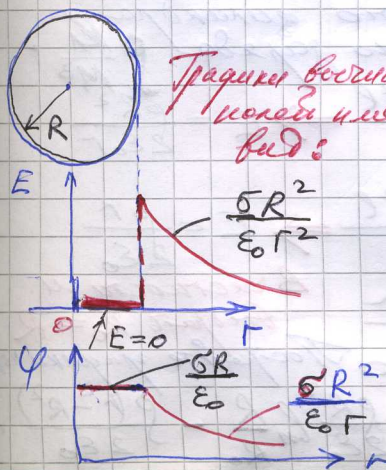 R
Графики вычис
полей име
вид:
E
σR²
ε₀ r²
0
E=0
r
φ
σR
ε₀
σR²
ε₀ r
r